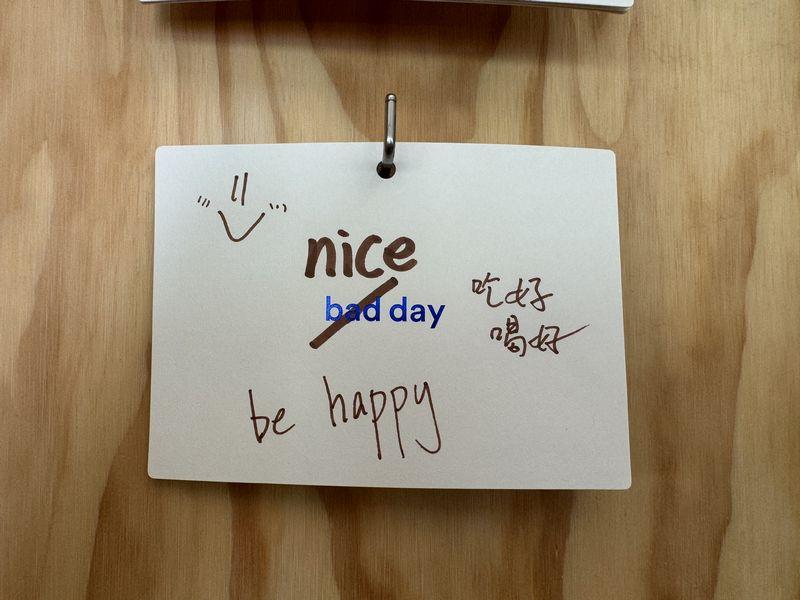 nice
bad day
吃好
喝好
be happy